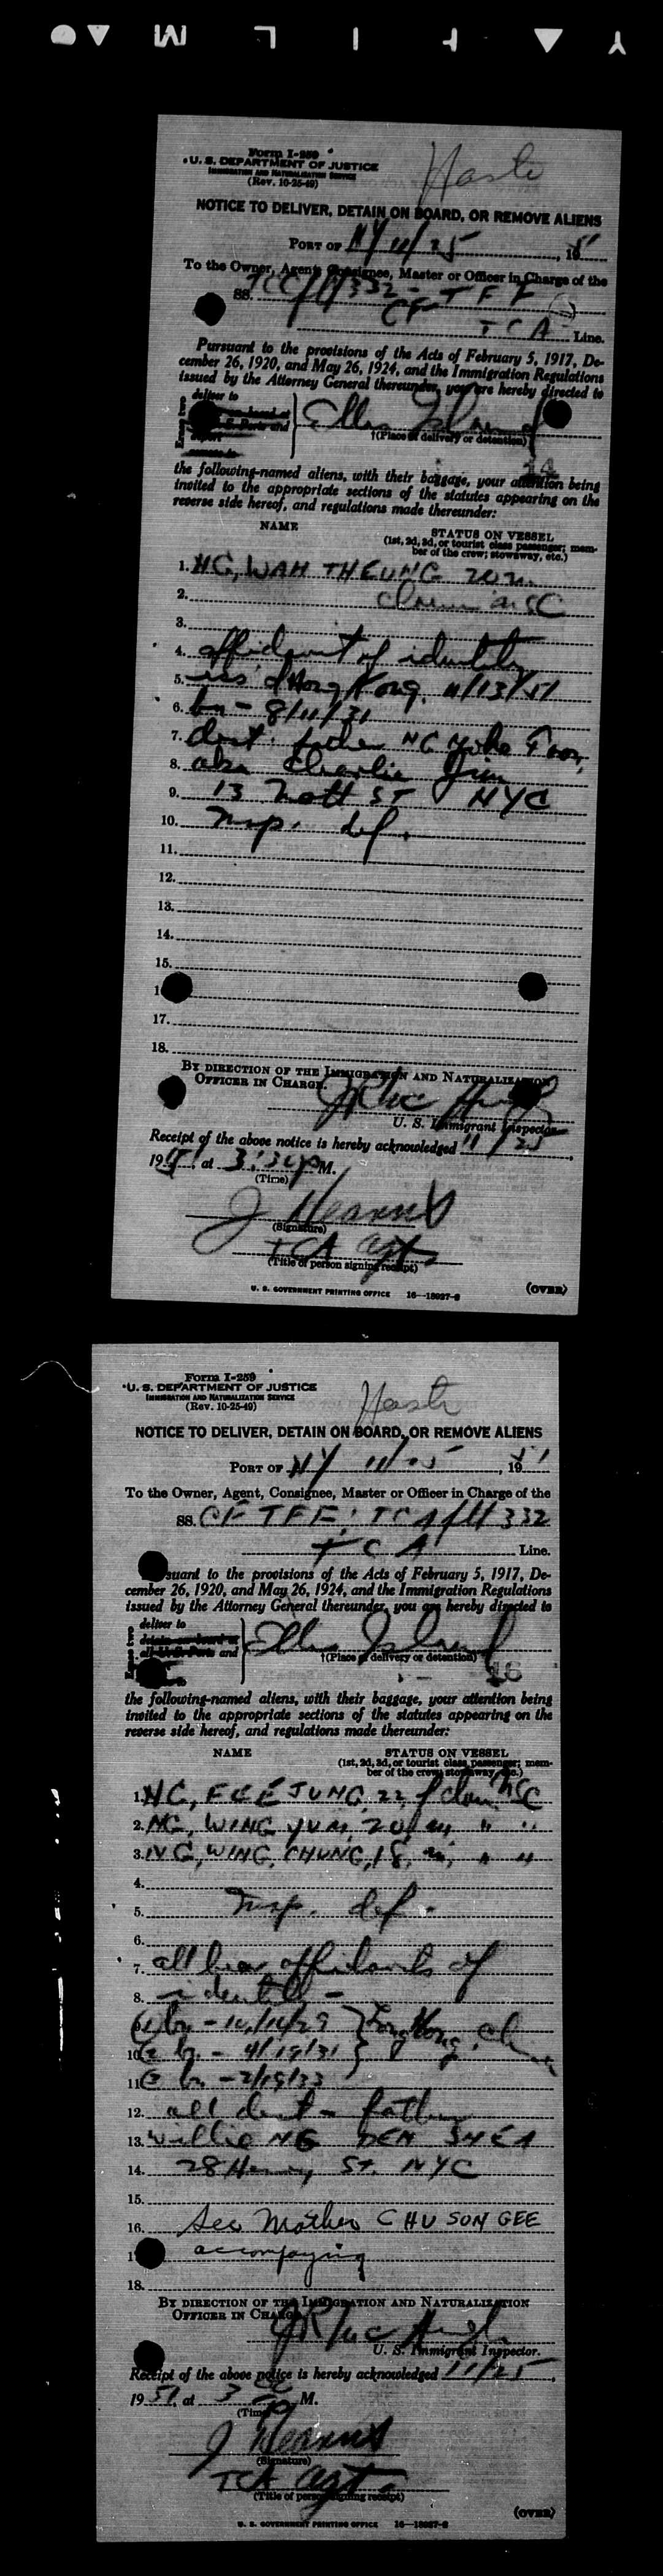 Form I-259
U. S. DEPARTMENT OF JUSTICE
IMMIGRATION AND NATURALIZATION SERVICE
(Rev. 10-25-49)
NOTICE TO DELIVER, DETAIN ON BOARD, OR REMOVE ALIENS
PORT OF NY 11/25, 19
To the Owner, Agent, Consignee, Master or Officer in Charge of the
SS. 332 - TFF
CF
TCA Line.
Pursuant to the provisions of the Acts of February 5, 1917, De-
cember 26, 1920, and May 26, 1924, and the Immigration Regulations
issued by the Attorney General thereunder, you are hereby directed to
deliver to
Ellis Island
†(Place of delivery or detention)
14
the following-named aliens, with their baggage, your attention being
invited to the appropriate sections of the statutes appearing on the
reverse side hereof, and regulations made thereunder:
NAME STATUS ON VESSEL
(1st, 2d, 3d, or tourist class passenger; mem-
ber of the crew; stowaway, etc.)
1. NG, WAH THEUNG 20
2. claim USC
3.
4. affidavit of identity
5. iss'd Hong Kong 11/13/51
6. bn - 8/11/31
7. dest. father NG
8. aka Charlie
9. 13 Mott ST NYC
10. insp. def.
11.
12.
13.
14.
15.
1
17.
18.
BY DIRECTION OF THE IMMIGRATION AND NATURALIZATION
OFFICER IN CHARGE.
U. S. Immigrant Inspector
Receipt of the above notice is hereby acknowledged 11/25,
1951, at 3:30 P M.
(Time)
J
(Signature)
TCA agt.
(Title of person signing receipt)
U. S. GOVERNMENT PRINTING OFFICE 16—18927-2 (OVER)
Form I-259
U. S. DEPARTMENT OF JUSTICE
IMMIGRATION AND NATURALIZATION SERVICE
(Rev. 10-25-49)
NOTICE TO DELIVER, DETAIN ON BOARD, OR REMOVE ALIENS
PORT OF NY 11/25, 1951
To the Owner, Agent, Consignee, Master or Officer in Charge of the
SS. CF TFF, TCA 332
TCA Line.
suant to the provisions of the Acts of February 5, 1917, De-
cember 26, 1920, and May 26, 1924, and the Immigration Regulations
issued by the Attorney General thereunder, you are hereby directed to
deliver to
and
Ellis Island
†(Place of delivery or detention)
16
the following-named aliens, with their baggage, your attention being
invited to the appropriate sections of the statutes appearing on the
reverse side hereof, and regulations made thereunder:
NAME STATUS ON VESSEL
(1st, 2d, 3d, or tourist class passenger; mem-
ber of the crew; stowaway, etc.)
1. NG, FEE JUNG 22 f claim USC
2. NG, WING YUM, 20, m, " "
3. NG, WING CHUNG, 18, m, " "
4.
5. insp. def.
6.
7. all have affidavits of
8. identity -
(1) bn - 10/14/29 Hong Kong, China
10. (2 bn - 4/19/31
11. (3 bn - 2/19/33
12. all dest - father
13. Willie NG DEN SHEA
14. 28 Henry St. NYC
15.
16. See Mother CHU SON GEE
1 accompaying
18.
BY DIRECTION OF THE IMMIGRATION AND NATURALIZATION
OFFICER IN CHARGE.
U. S. Immigrant Inspector.
Receipt of the above notice is hereby acknowledged 11/25,
1951, at 3 P M.
(Time)
J
(Signature)
TCA agt.
(Title of person signing receipt)
(OVER)
U. S. GOVERNMENT PRINTING OFFICE 16—18927-2